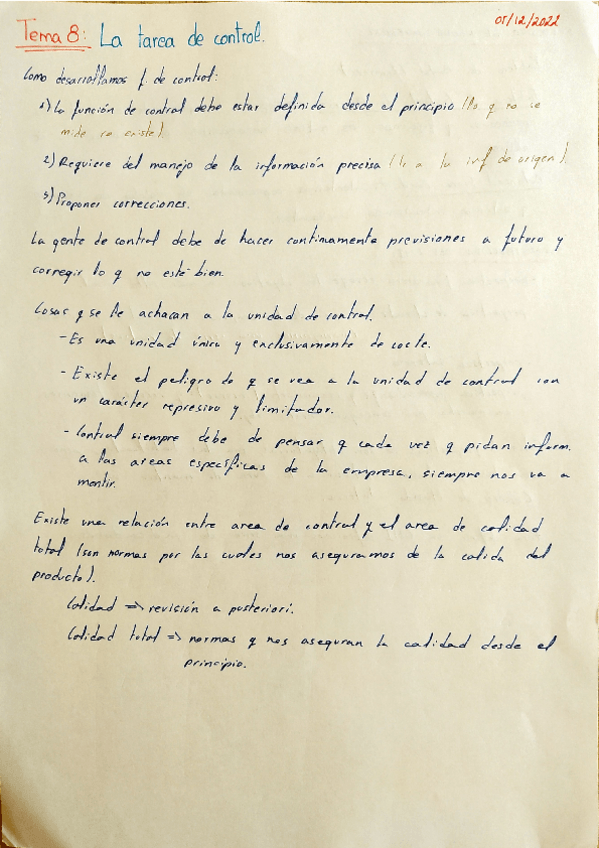 Tema 8: La tarea de control.
01/12/2022
Como desarrollamos f. de control:
1) La función de control debe estar definida desde el principio (lo q no se
mide no existe)
2) Requiere del manejo de la información precisa (Ir a la inf de origen).
3) Proponer correcciones.
La gente de control debe de hacer continamente previsiones a futuro y
corregir lo q no esté bien.
Cosas q se le achacan a la unidad de control.
- Es una unidad única y exclusivamente de coste.
- Existe el peligro de q se vea a la unidad de control con
un carácter represivo y limitador.
- Control siempre debe de pensar q cada vez q pidan inform.
a las areas específicas de la empresa, siempre nos va a
mentir.
Existe una relación entre area de control y el area de calidad
total (son normas por las cuales nos aseguramos de la calida del
producto).
Calidad => revisión a posteriori.
Calidad total => normas q nos aseguran la calidad desde el
principio.